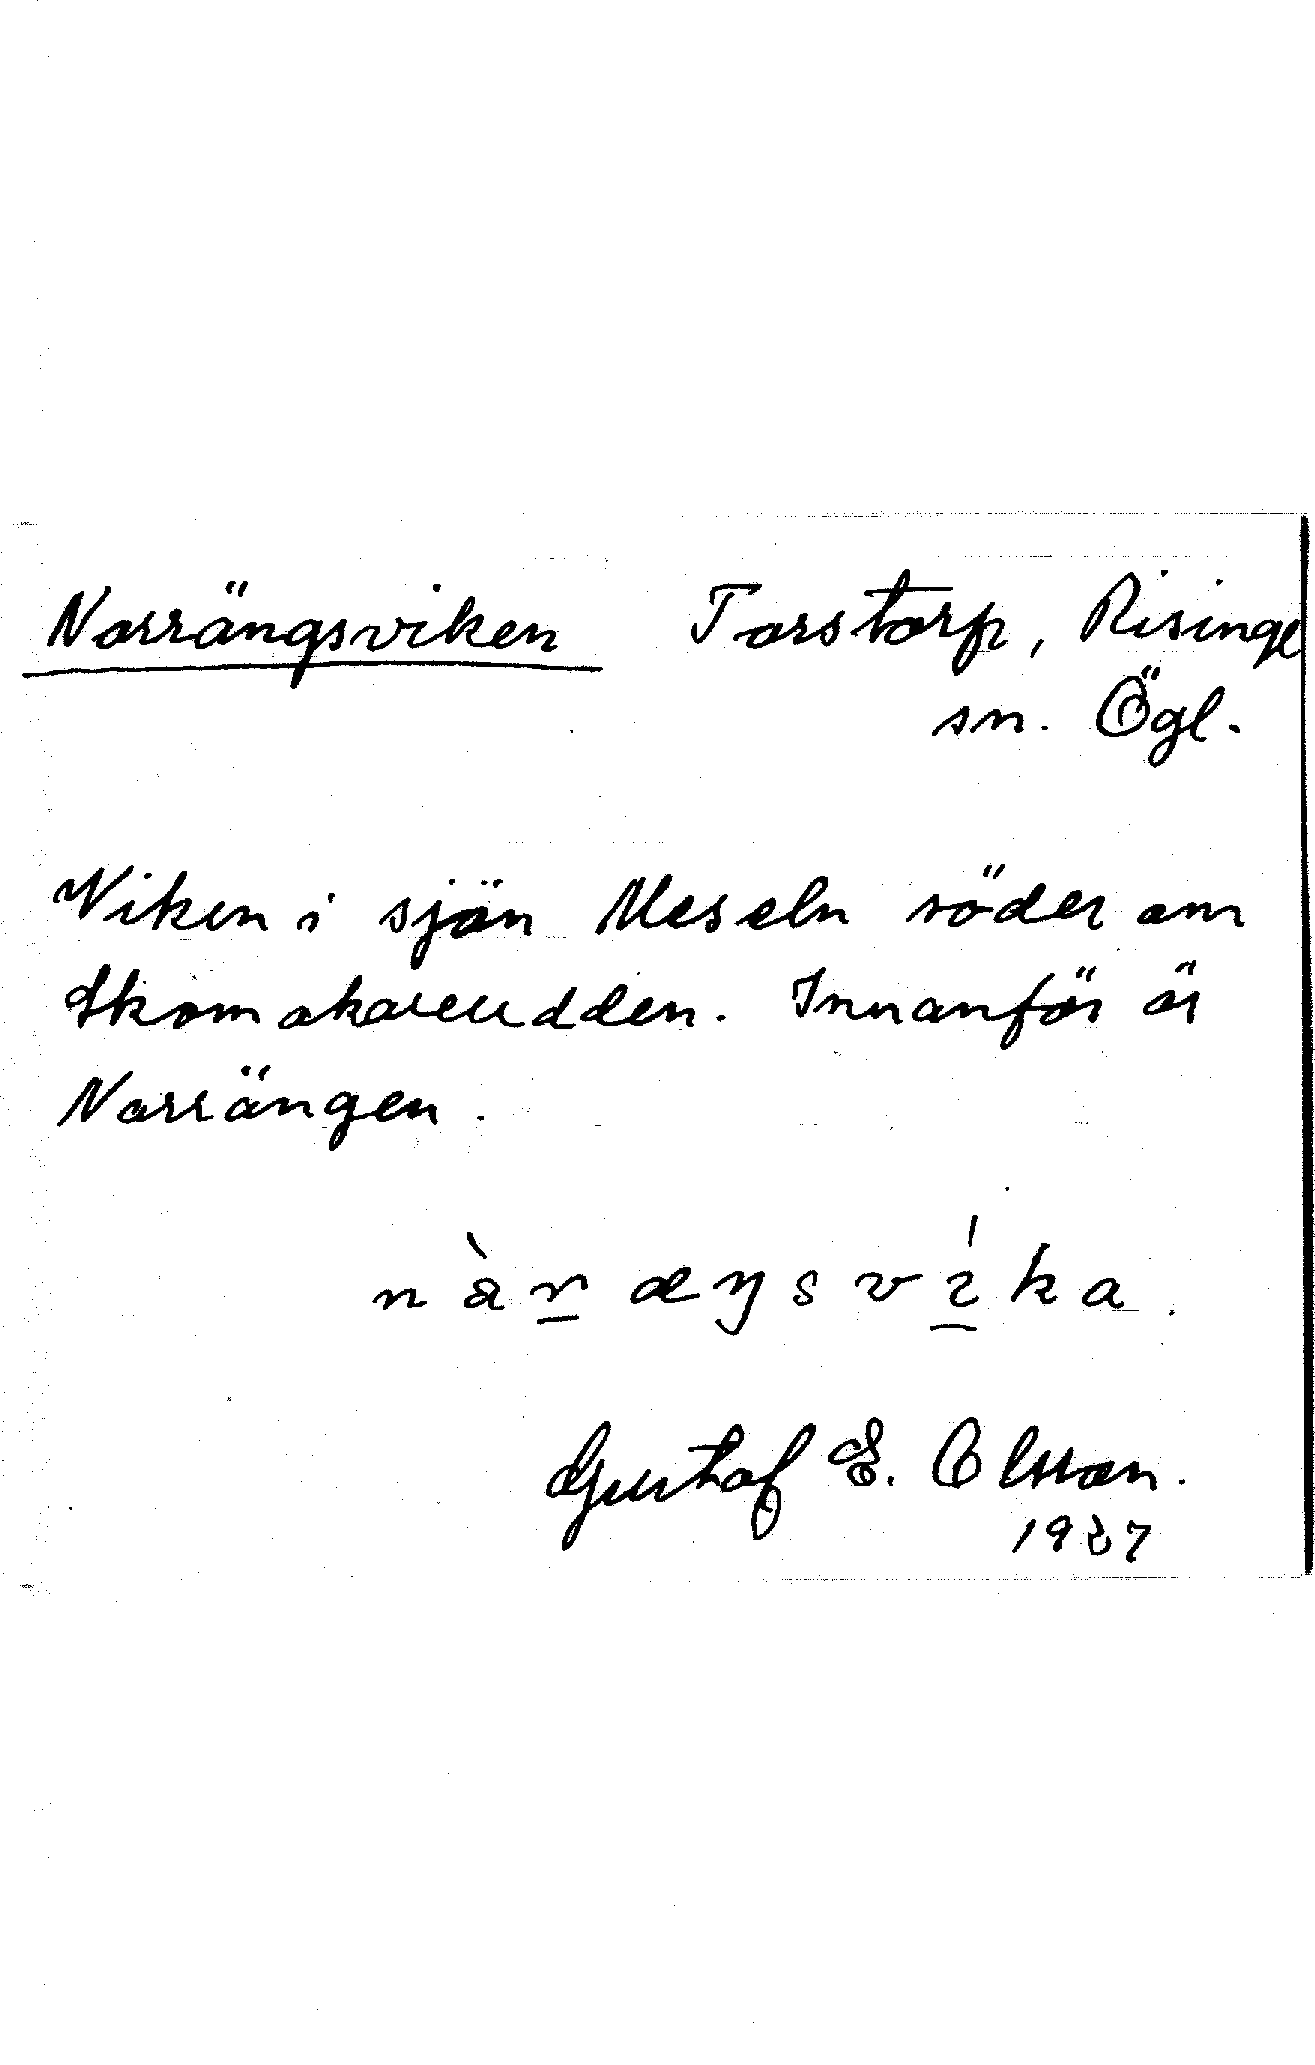 Norrängsviken Torstorp, Risinge
sn. Ögl.
Viken i sjön Meseln söder om
Skomakareudden. Innanför är
Norrängen.
nàr̲æŋsví̲ka.
Gustaf E. Olsson.